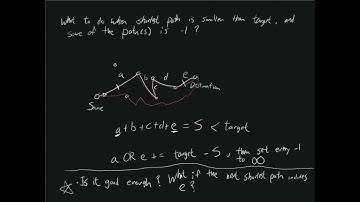 What to do when shortest path is smaller than target, and
some of the path(s) is -1 ?
a b c d e
Source
Destination
a+b+c+d+e = S < target
a OR e += target - S, then set every -1
to ∞
☆ Is it good enough? What if the next shortest path includes
e ?